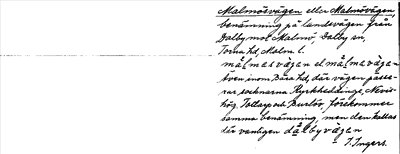 Malmösvägen eller Malmövägen,
benämning på landsvägen från
Dalby mot Malmö, Dalby sn,
Torna hd, Malm. l.
målmasvægen el målmøvægen
Även inom Bara hd, där vägen passe-
rar socknarna Kyrkheddinge, Nevis-
hög, Tottarp och Burlöv, förekommer
samma benämning, men den kallas
där vanligen dalbyvægen
I. Ingers.